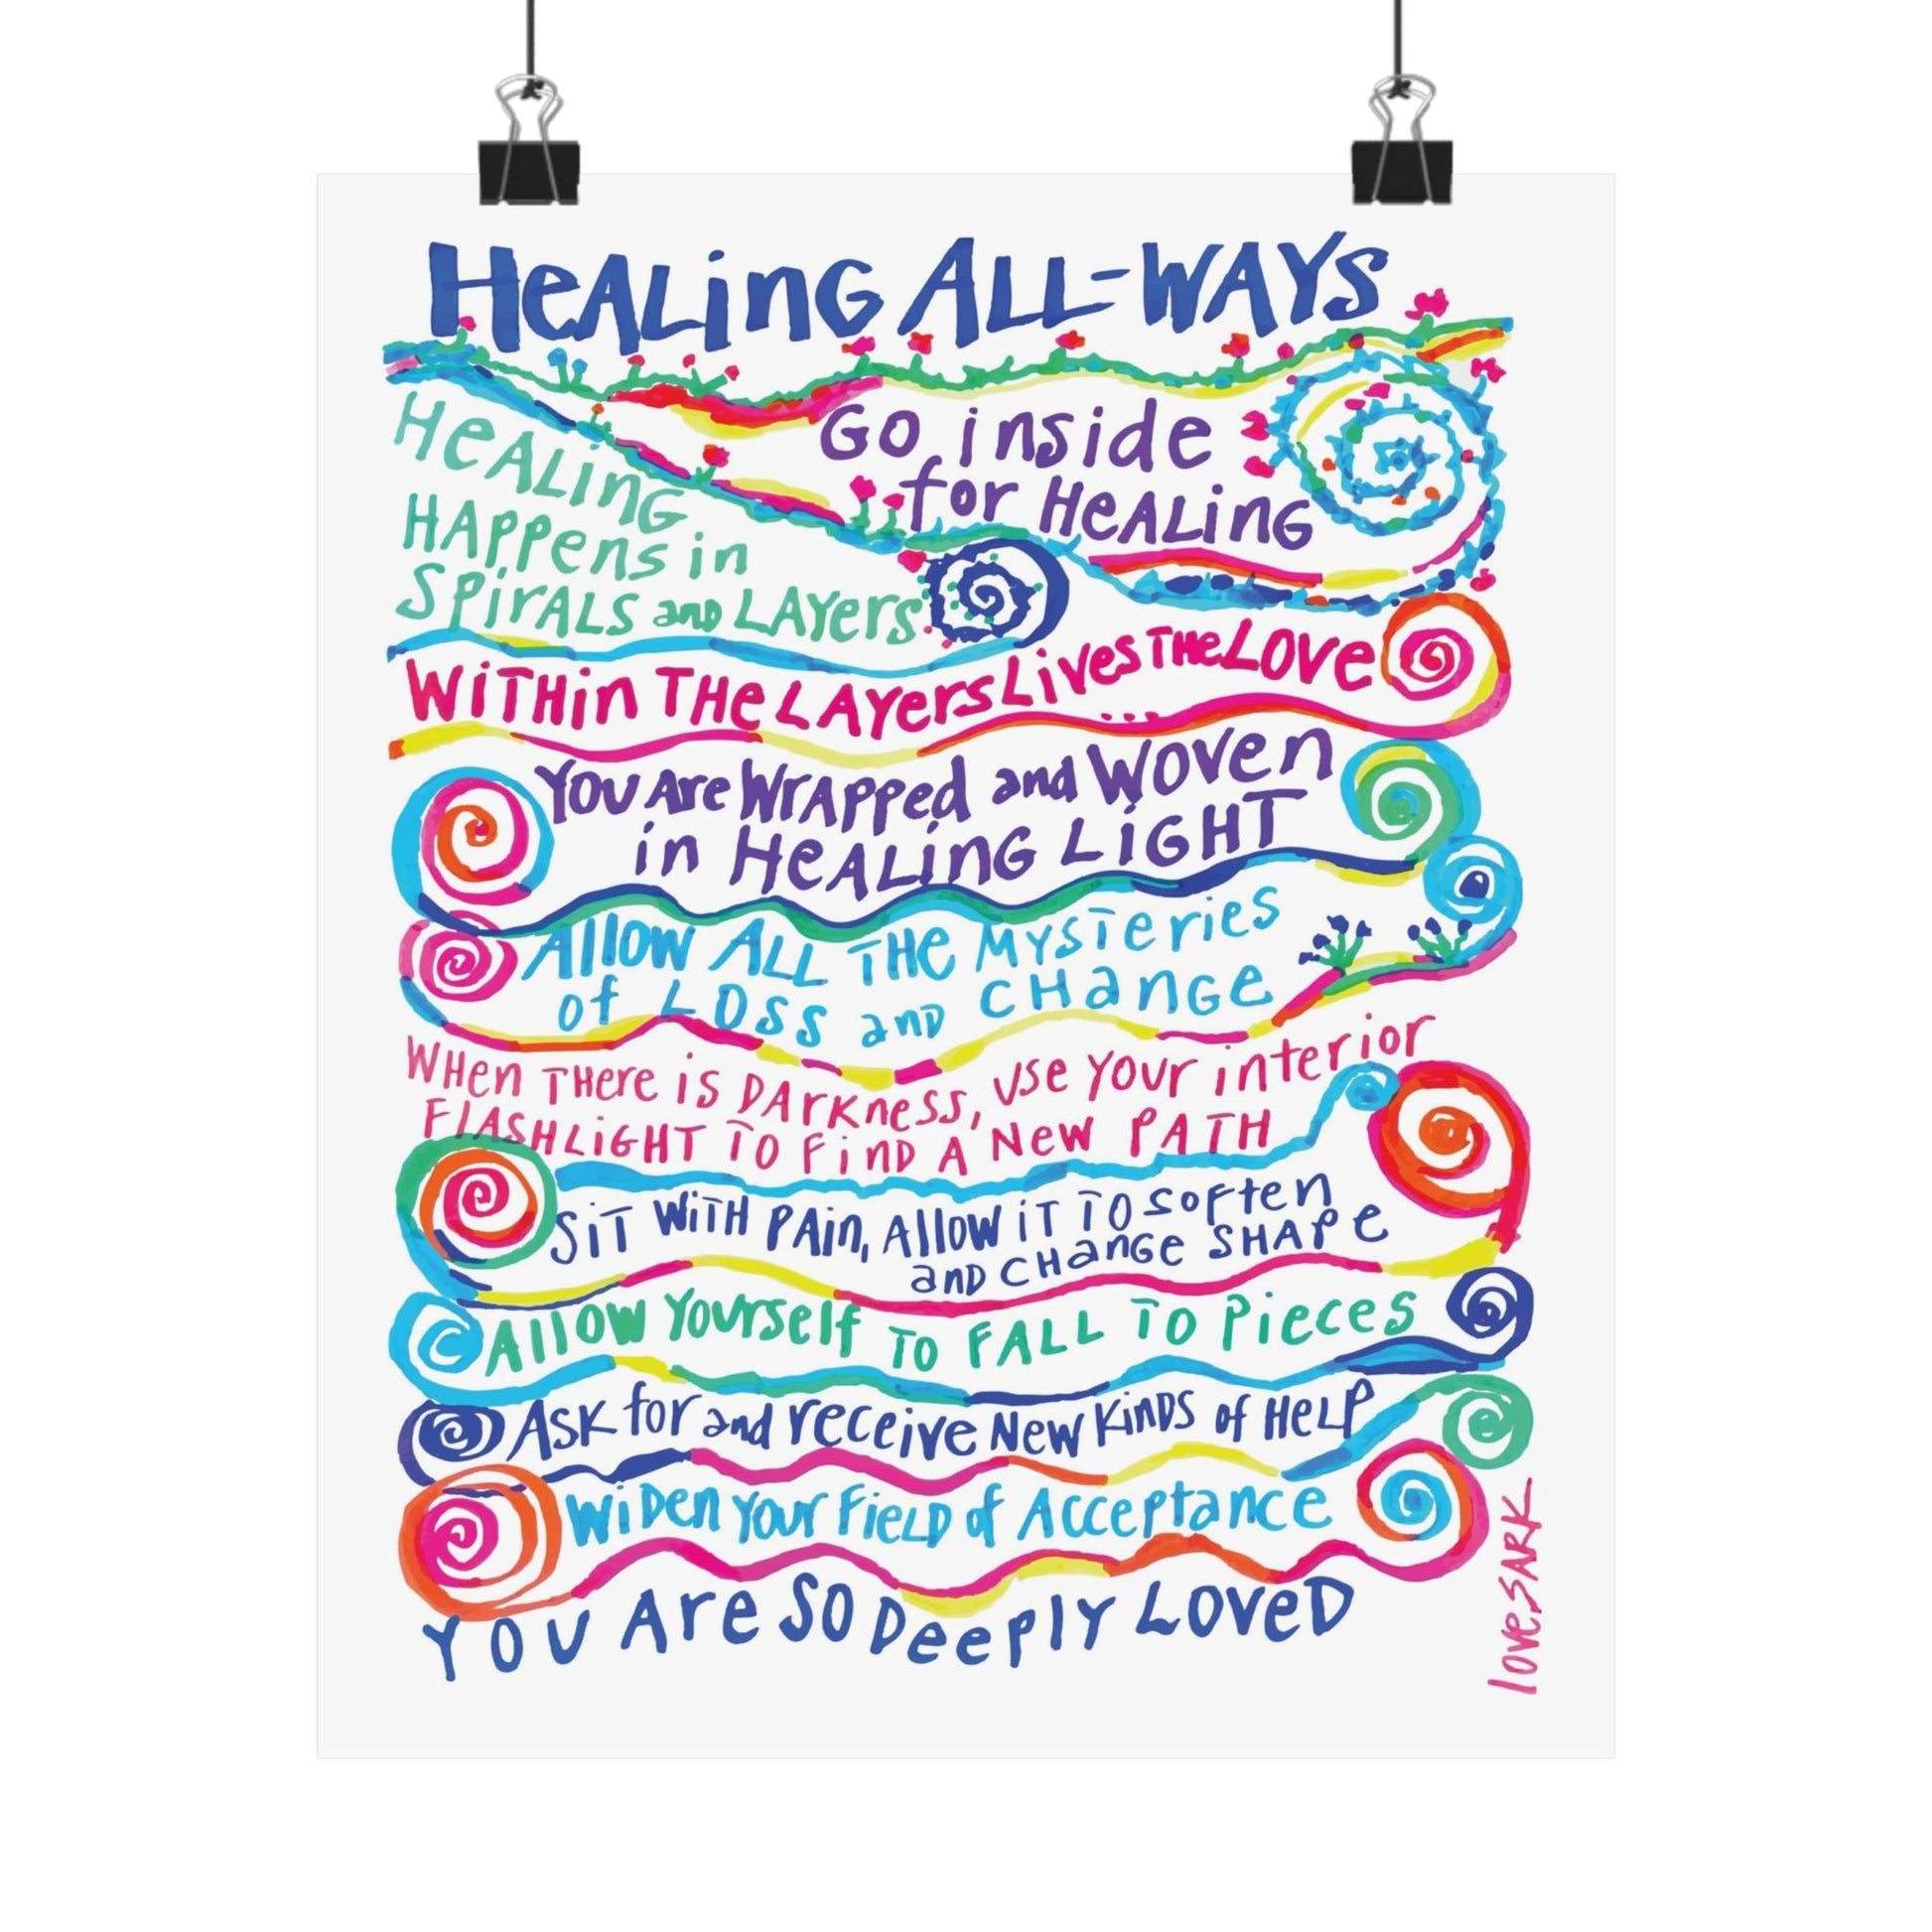 HeALinG ALL-WAYS
Go inside
for HeALinG
HeALinG
HAppens in
SpirALS and LAyers
WiTHin THe LAyers Lives THe Love
You Are WrApped and Woven
in HeALinG LiGHT
Allow ALL THe MysTeries
of LOSS and CHanGe
WHen THere is DArkness, use your interior
FLASHLiGHT TO FinD A New PATH
SiT WiTH PAin, Allow iT TO soften
and CHanGe SHApe
Allow Yourself TO FALL TO Pieces
Ask for and receive New KinDs of HeLp
WiDen Your FieLD of Acceptance
YOU Are SO DeeplY LoveD
love SARK